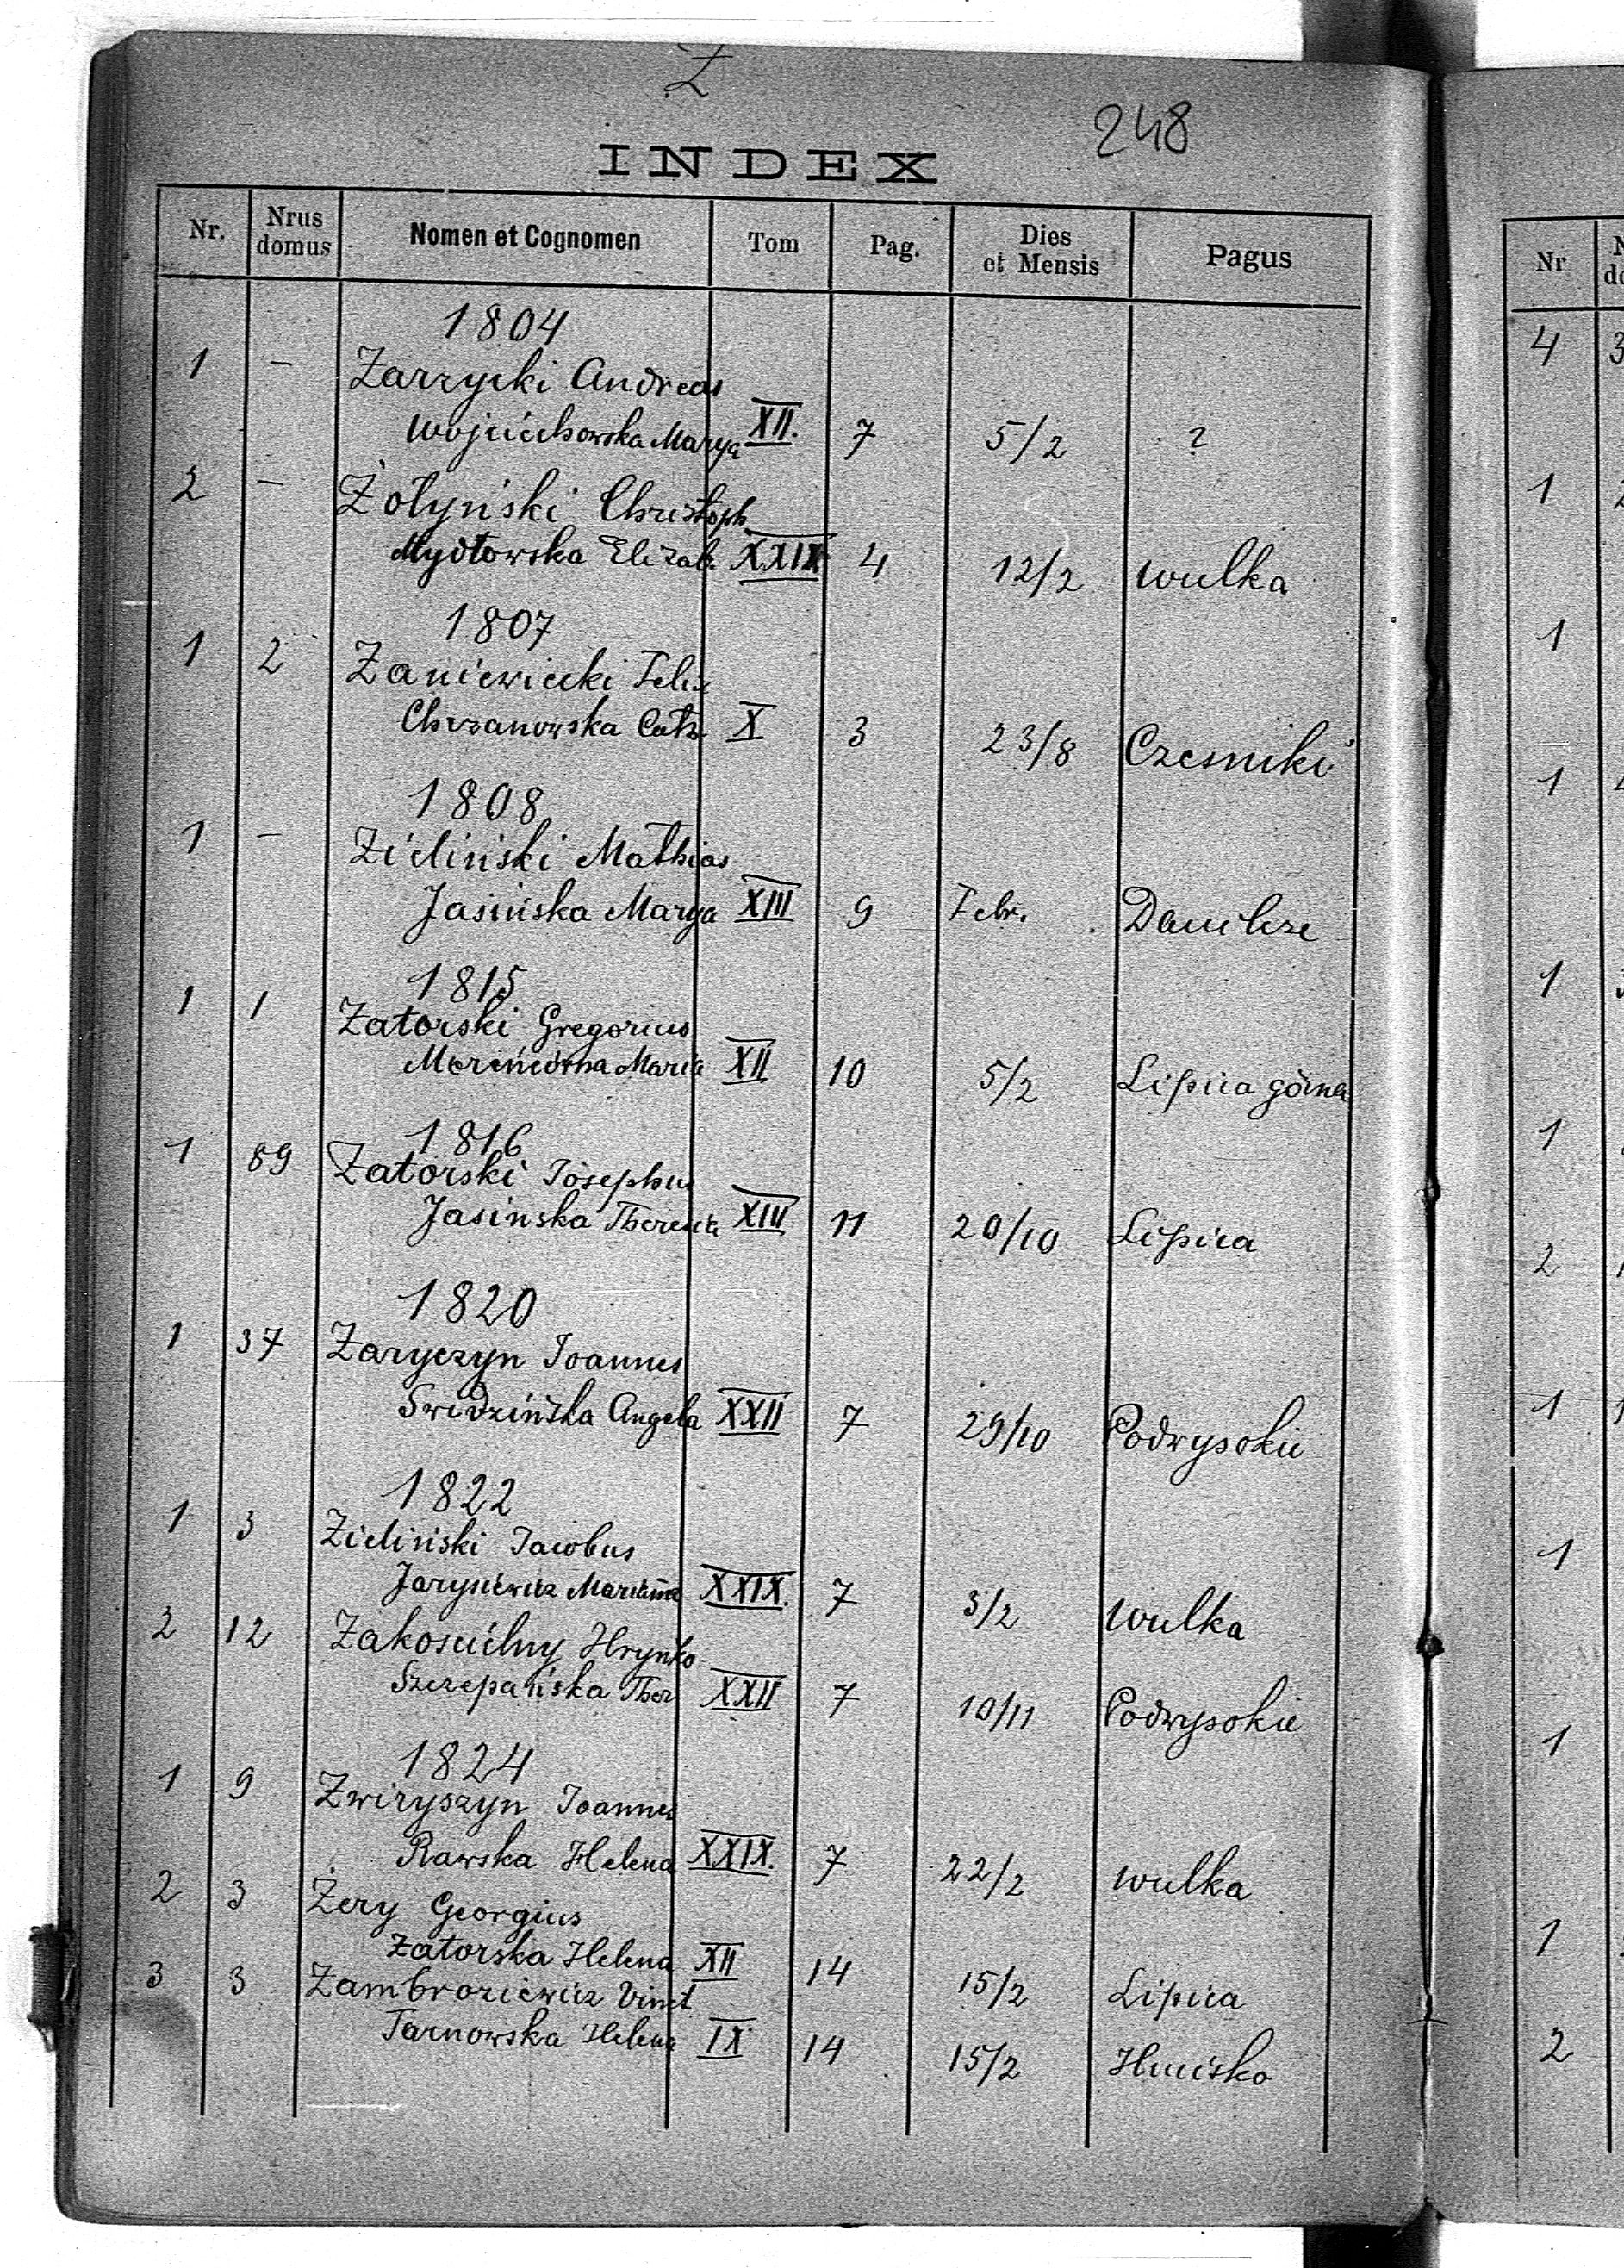 Z
248
INDEX
Nr. Nrus domus Nomen et Cognomen Tom Pag. Dies et Mensis Pagus
1804
1 — Zarzycki Andreas
Wojciechowska Marya XII. 7 5/2 ?
2 — Żołyński Christoph
Mydłowska Elizab. XXIX 4 12/2 Wulka
1807
1 2 Zaniewiecki Felix
Chrzanowska Cath X 3 23/8 Czesniki
1808
1 — Zieliński Mathias
Jasińska Marya XIII 9 Febr. Danilcze
1815
1 1 Zatorski Gregorius
Maria XII 10 5/2 Lipica górna
1816
1 89 Zatorski Josephus
Jasinska Theresia XIII 11 20/10 Lipica
1820
1 37 Zaryczyn Joannes
Swidzińska Angela XXII 7 29/10 Podwysokie
1822
1 3 Zieliński Jacobus
Jarysiewicz Marianna XXIX. 7 3/2 Wulka
2 12 Zakoscielny Hryńko
Szczepańska Ther XXII 7 10/11 Podwysokie
1824
1 9 Zwiryszyn Joannes
Rawska Helena XXIX. 7 22/2 Wulka
2 3 Żery Georgius
Zatorska Helena XII 14 15/2 Lipica
3 3 Zambroziewicz Vinct
Tarnowska Helena IX 14 15/2 Hucisko
Nr
4 3
1
1
1
1
1
2
1
1
1
1
2